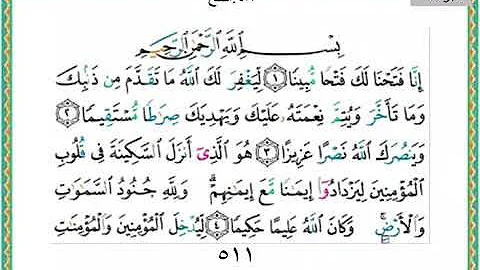 بِسْمِ ٱللَّهِ ٱلرَّحْمَٰنِ ٱلرَّحِيمِ
إِنَّا فَتَحْنَا لَكَ فَتْحًا مُّبِينًا ١ لِّيَغْفِرَ لَكَ ٱللَّهُ مَا تَقَدَّمَ مِن ذَنۢبِكَ
وَمَا تَأَخَّرَ وَيُتِمَّ نِعْمَتَهُۥ عَلَيْكَ وَيَهْدِيَكَ صِرَٰطًا مُّسْتَقِيمًا ٢
وَيَنصُرَكَ ٱللَّهُ نَصْرًا عَزِيزًا ٣ هُوَ ٱلَّذِىٓ أَنزَلَ ٱلسَّكِينَةَ فِى قُلُوبِ
ٱلْمُؤْمِنِينَ لِيَزْدَادُوٓا۟ إِيمَٰنًا مَّعَ إِيمَٰنِهِمْ ۗ وَلِلَّهِ جُنُودُ ٱلسَّمَٰوَٰتِ
وَٱلْأَرْضِ ۚ وَكَانَ ٱللَّهُ عَلِيمًا حَكِيمًا ٤ لِّيُدْخِلَ ٱلْمُؤْمِنِينَ وَٱلْمُؤْمِنَٰتِ
٥١١